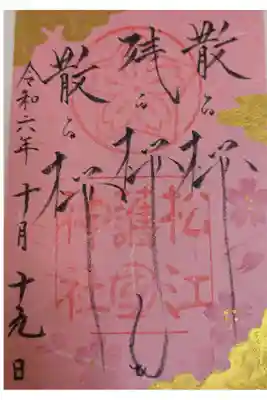 散る桜
残る桜も
散る桜
令和六年十月十九日
松江
護國
神社